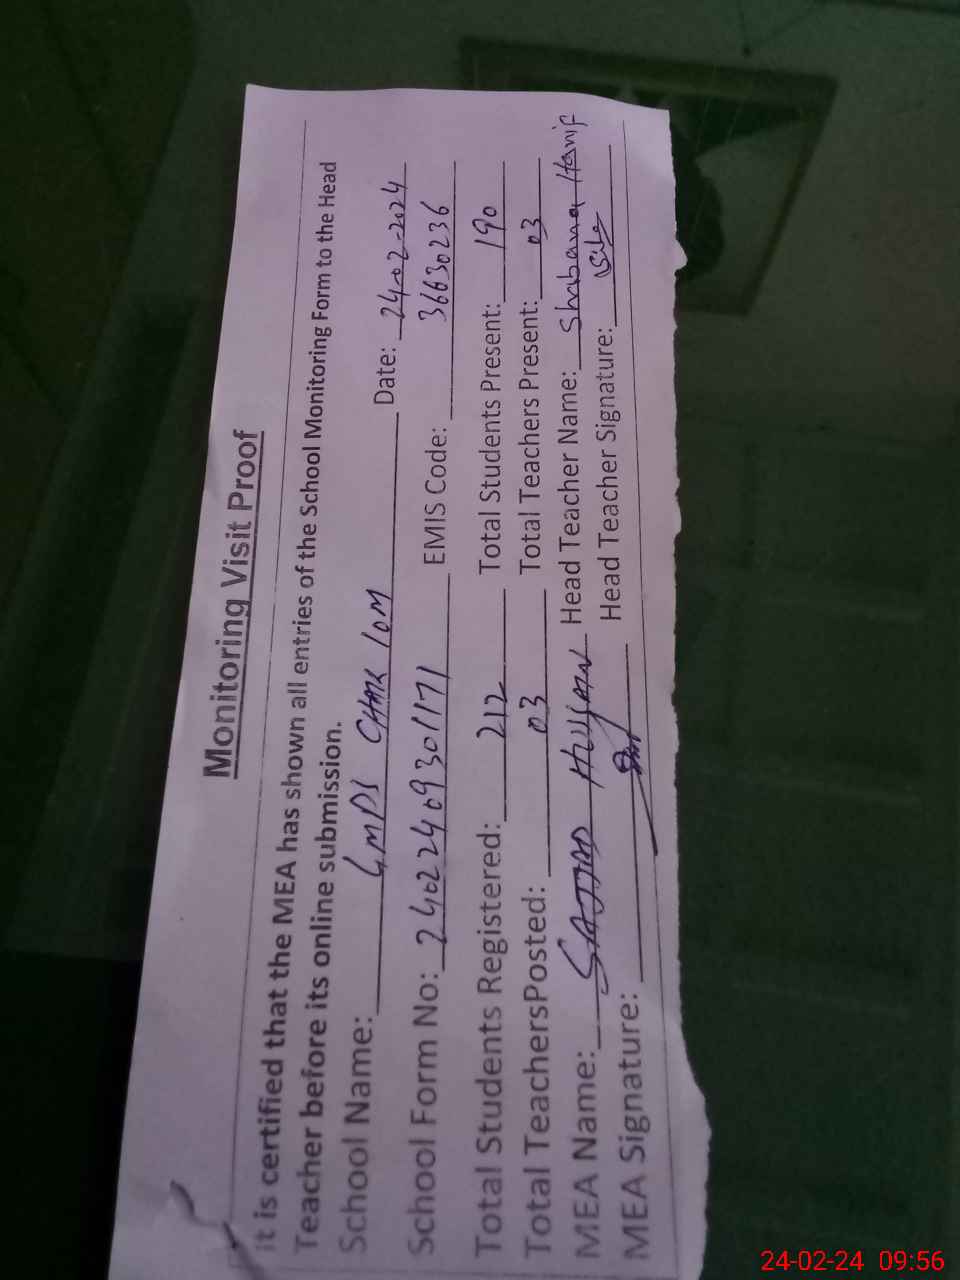 Monitoring Visit Proof
it is certified that the MEA has shown all entries of the School Monitoring Form to the Head
Teacher before its online submission.
School Name: GMPS CHAK 10M Date: 24-02-2024
School Form No: 24022409301171 EMIS Code: 36630236
Total Students Registered: 212 Total Students Present: 190
Total TeachersPosted: 03 Total Teachers Present: 03
MEA Name: SAJJAD HUSSAIN Head Teacher Name: Shabana Hanif
MEA Signature: Head Teacher Signature:
24-02-24 09:56